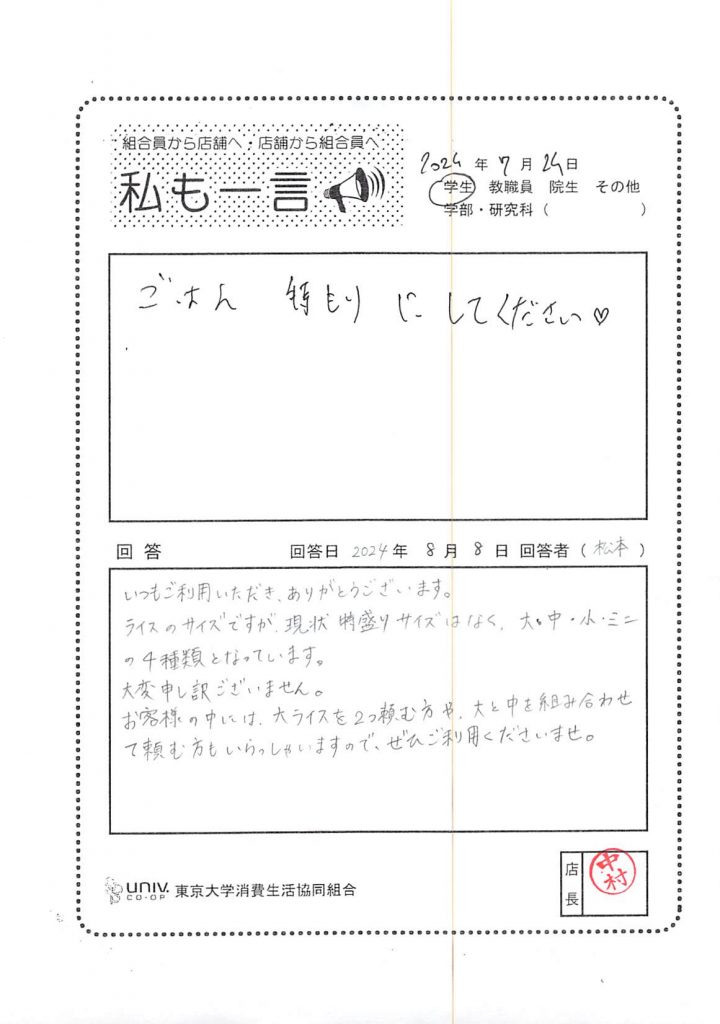 組合員から店舗へ・店舗から組合員へ
私も一言
2024年7月24日
学生 教職員 院生 その他
学部・研究科( )
ごはん 特もり にしてください♡
回答 回答日 2024年 8月 8日 回答者(松本)
いつもご利用いただき、ありがとうございます。
ライスのサイズですが、現状 特盛りサイズはなく、大・中・小・ミニ
の4種類となっています。
大変申し訳ございません。
お客様の中には、大ライスを2つ頼む方や、大と中を組み合わせ
て頼む方もいらっしゃいますので、ぜひご利用くださいませ。
UNIV. CO-OP 東京大学消費生活協同組合
店長 中村